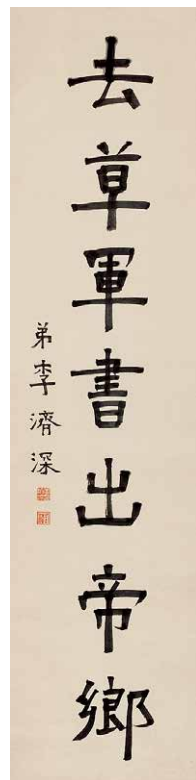 去草軍書出帝鄉
弟李濟深